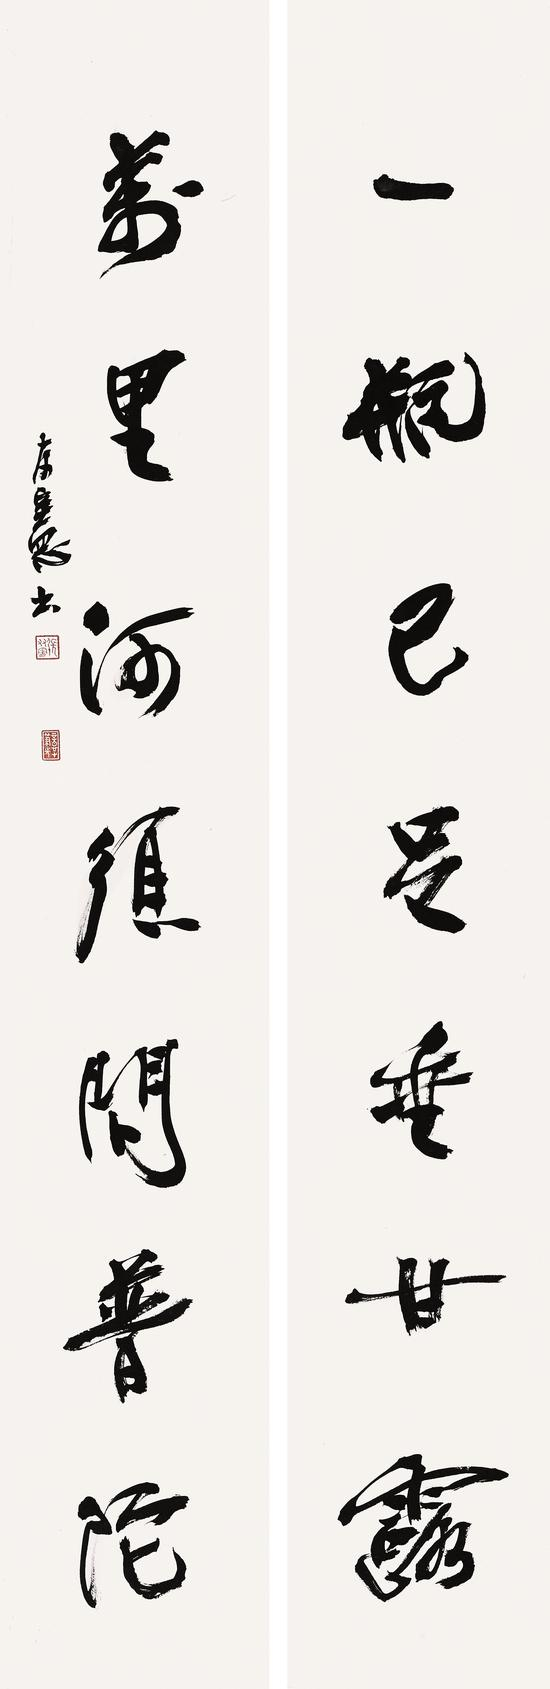 一瓶已足垂甘露
萬里河須問普陀